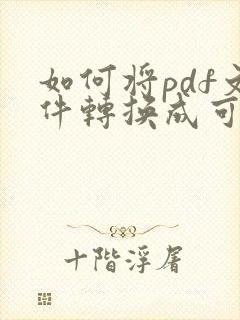 如何将pdf文
件轉换成可
十階浮屠